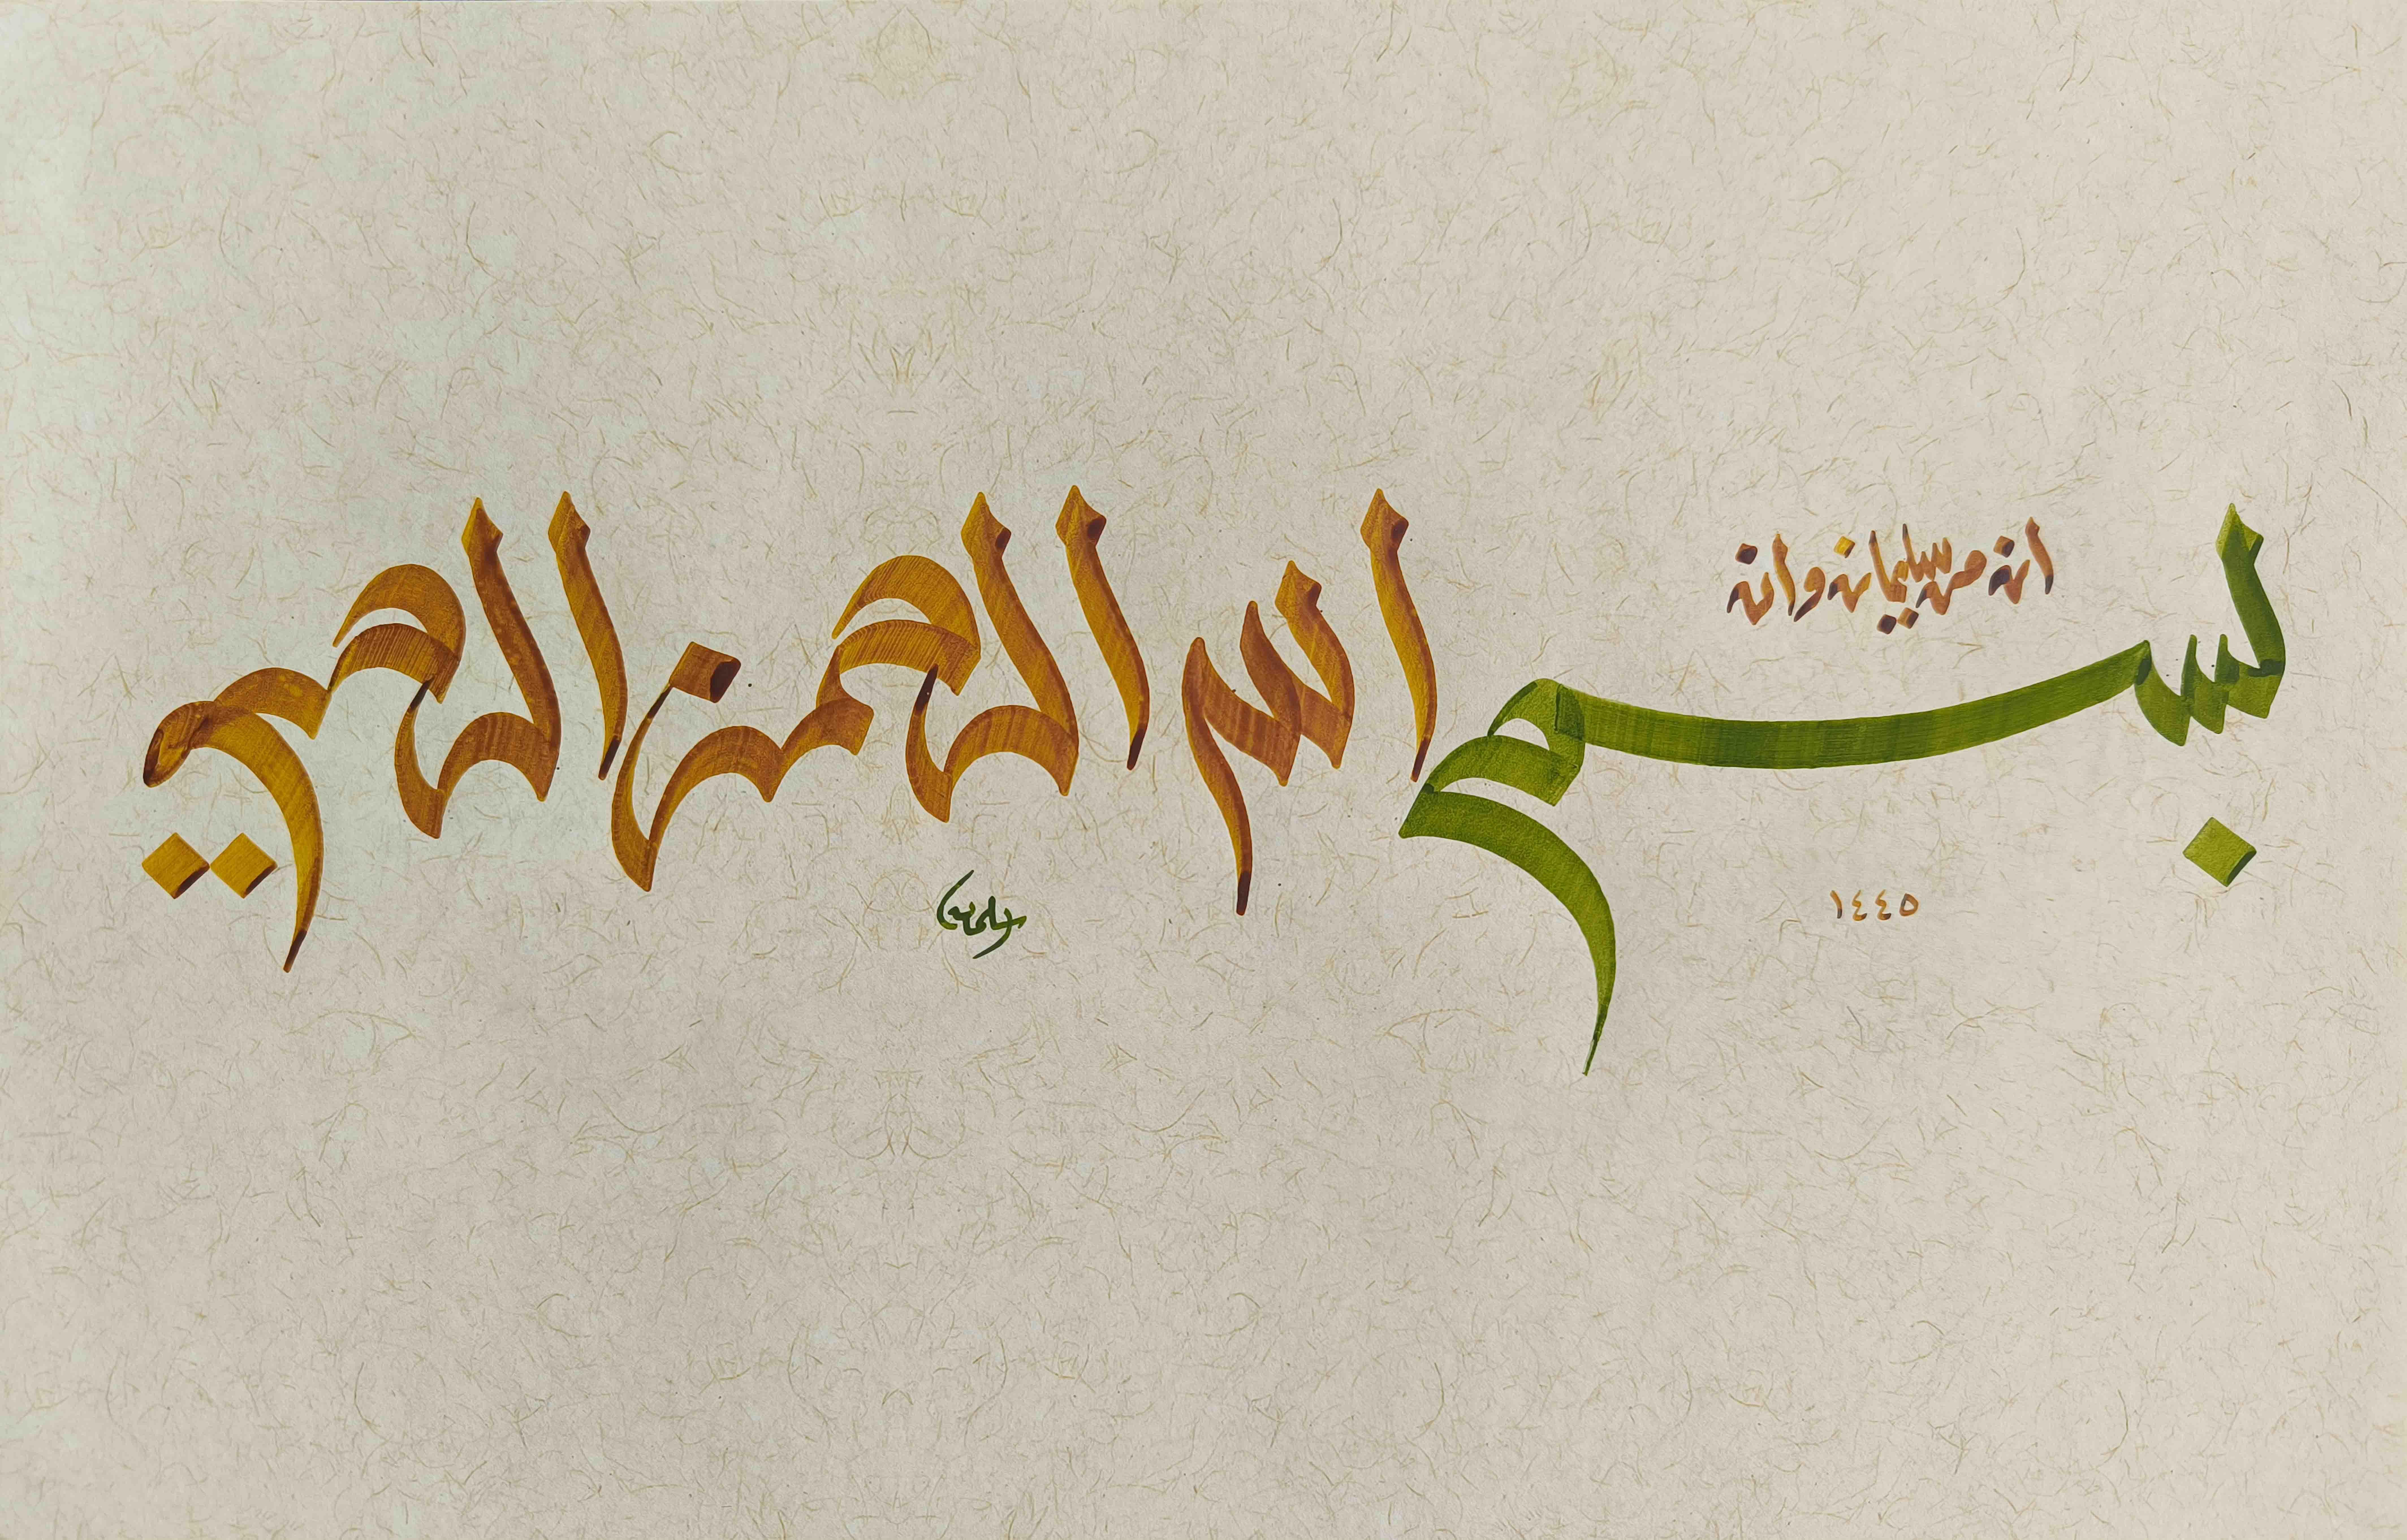 انه من سليمان وانه
بسم الله الرحمن الرحيم
١٤٤٥